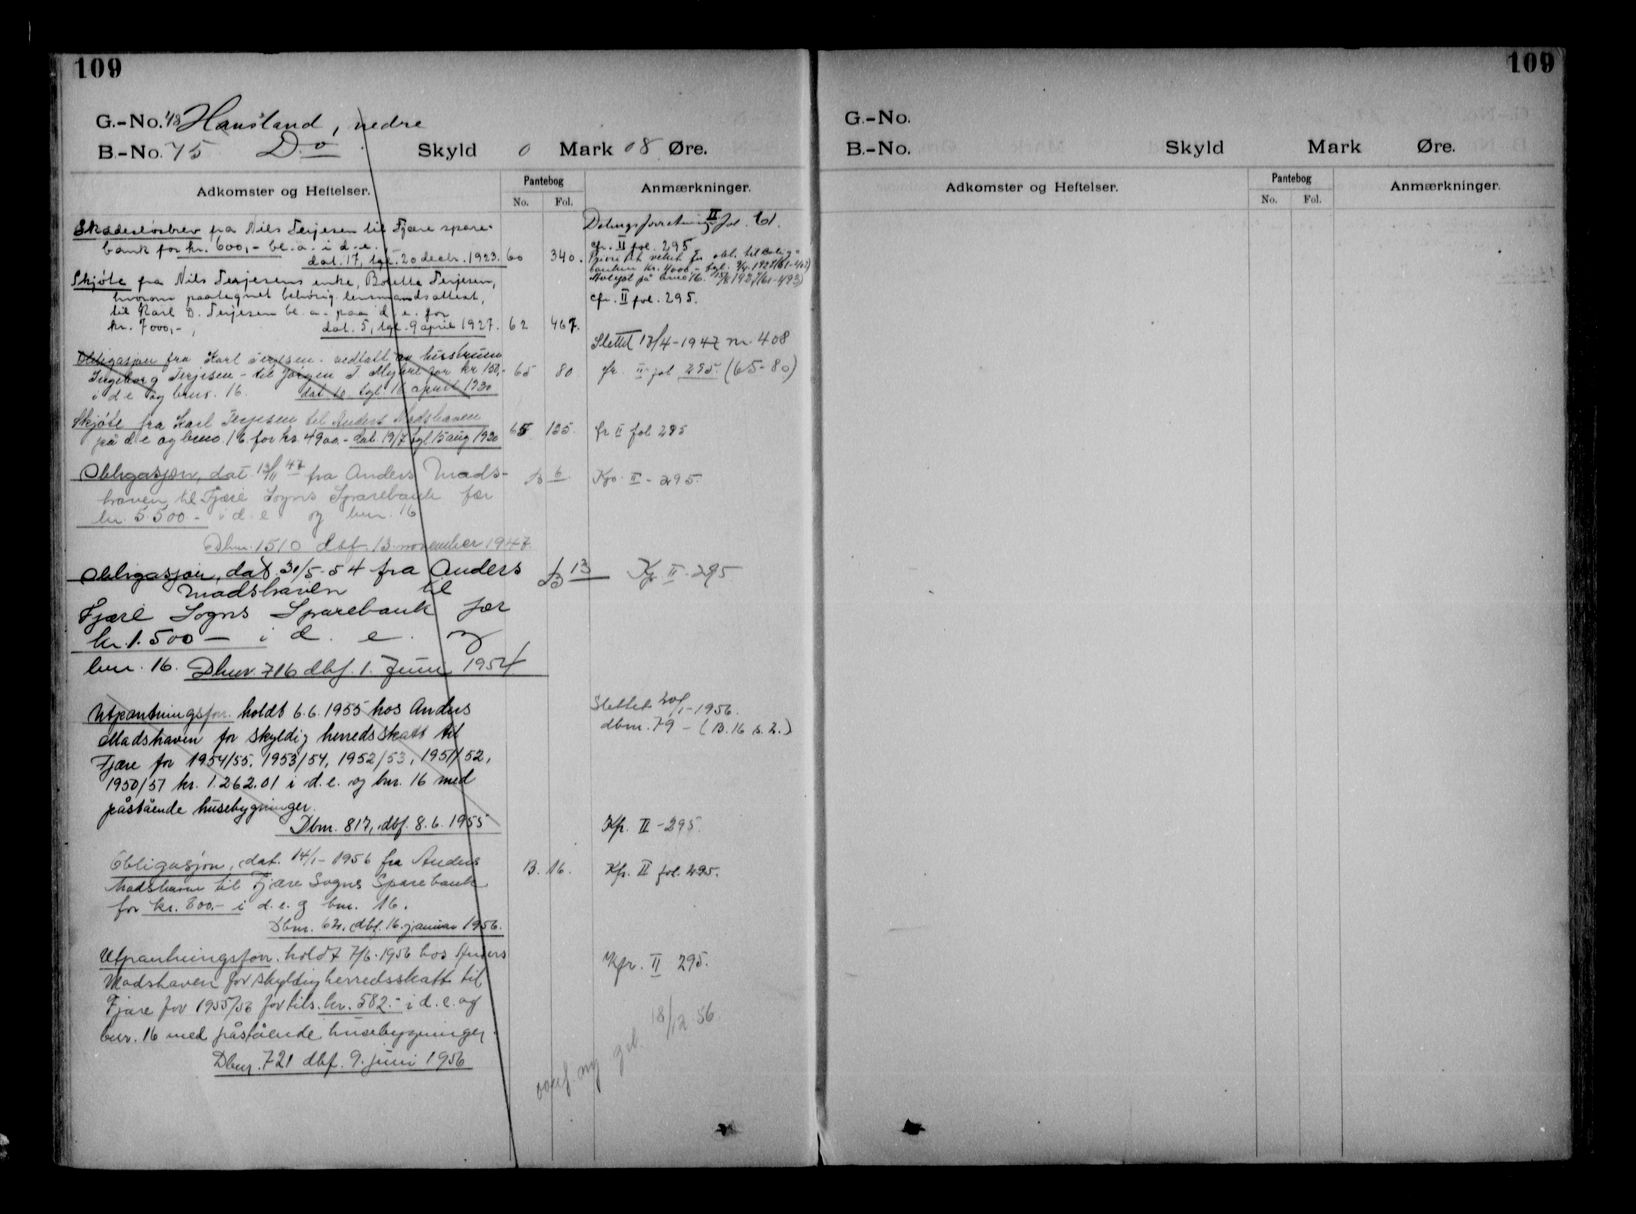 109
G.-No. 48 Haustland, nedre
B.-No. 75 Do Skyld 0 Mark 08 Øre.
Adkomster og Heftelser.
Pantebog
No. Fol.
Anmærkninger.
Skadesløsbrev fra Nils Terjesen til Fjære spare-
bank for kr. 600,- bl. a. i d. e.
dat. 17, tgl. 20 decbr. 1923. 60 340.
Delingsforretning II fol. 101.
cfr. II fol. 295
Skjøte fra Nils Terjesens enke, Boletta Terjesen,
hvorom paategnet behørig lensmandsattest,
til Karl D. Terjesen bl. a. paa d. e. for
kr. 7000,-, dat. 5, tgl. 9 april 1927. 62 467.
cfr. II fol. 295.
Obligasjon fra Karl Terjesen vedtatt av hustruen
Ingeborg Terjesen - til Jørgen T for kr 150,-
i d e og bnr. 16. dat 10 tgl. 11 april 1930 65 80
Slettet 12/4-1947 nr. 408
cfr. II fol 295. (65-80)
Skjøte fra Karl Terjesen til Anders Madshaven
på d e og bnr 16 for kr 4900.- dat. 19/7 tgl 15 aug 1930 65 125.
cfr II fol 295
Obligasjon, dat 12/11 47 fra Anders Mads-
haven til Fjære Sogns Sparebank for
kr. 5.500.- i d. e. og bnr. 16
Dbnr. 1510 dbf. 13. november 1947
B 6
Kfr. II - 295.
Obligasjon, dat 31/5-54 fra Anders
Madshaven til
Fjære Sogns Sparebank for
kr. 1.500 - i d. e. og
bnr. 16. Dbnr. 716 dbf. 1. Juni 1954
B 13
Kfr II - 295
Utpantningsforr. holdt 6.6.1955 hos Anders
Madshaven for skyldig herredsskatt til
Fjære for 1954/55, 1953/54, 1952/53, 1951/52,
1950/51 kr. 1.262.01 i d. e. og bnr. 16 med
påstående husebygninger.
Dbnr. 817, dbf. 8.6.1955
Slettet 20/1-1956.
dbnr. 79 - (B. 16 s. 2.)
Kfr. II - 295.
Obligasjon, dat. 14/1-1956 fra Anders
Madshaven til Fjære Sogns Sparebank
for kr. 800.- i d. e. og bnr. 16.
Dbnr. 62. dbf. 16. januar 1956.
B. 16.
Kfr. II fol. 295.
Utpantningsforr. holdt 7/6-1956 hos Anders
Madshaven for skyldig herredsskatt til
Fjære for 1955/56 for tils. kr. 582.- i d. e. og
bnr. 16 med påstående husebygninger.
Dbnr. 721 dbf. 9. juni 1956
Kfr. II 295.
overf ny grb. 18/12 56
109
G.-No.
B.-No. Skyld Mark Øre.
Adkomster og Heftelser.
Pantebog
No. Fol.
Anmærkninger.